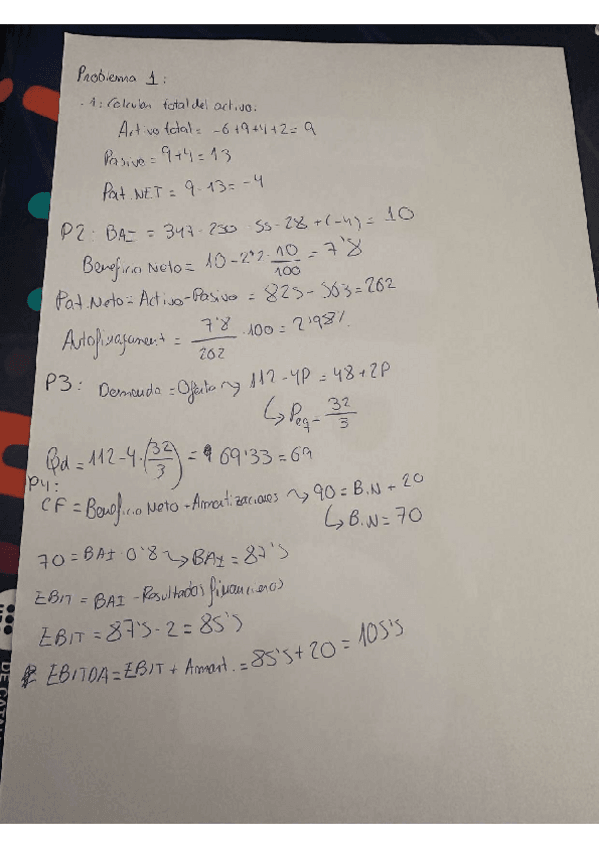 Problema 1:
-1: Calcular total del activo.
Activo total = -6+9+4+2 = 9
Pasivo = 9+4 = 13
Pat. NET = 9-13 = -4
P2: BAI = 347-250-55-28+(-4) = 10
Beneficio Neto = 10-2'2·10/100 = 7'8
Pat. Neto = Activo-Pasivo = 825-563 = 262
Autofinançament = 7'8/262 · 100 = 2'98%
P3: Demanda = Oferta → 112-4P = 48+2P
↳ Peq = 32/3
Qd = 112-4·(32/3) = 69'33 = 69
P4:
CF = Beneficio Neto + Amortizaciones → 90 = B.N + 20
↳ B.N = 70
70 = BAI·0'8 → BAI = 87'5
EBIT = BAI - Resultados financieros
EBIT = 87'5-2 = 85'5
EBITDA = EBIT + Amort. = 85'5+20 = 105'5
DE CATAL